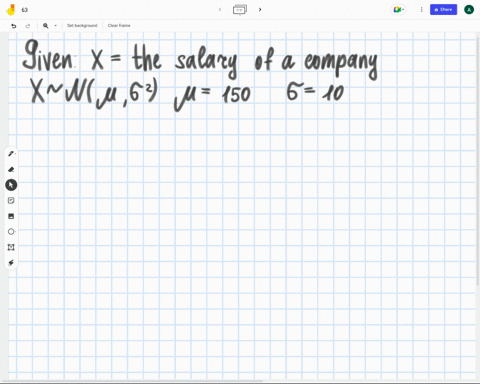 63
Share
A
Set background
Clear frame
Given: X = the salary of a company
X~N(μ,σ²) μ = 150 σ = 10